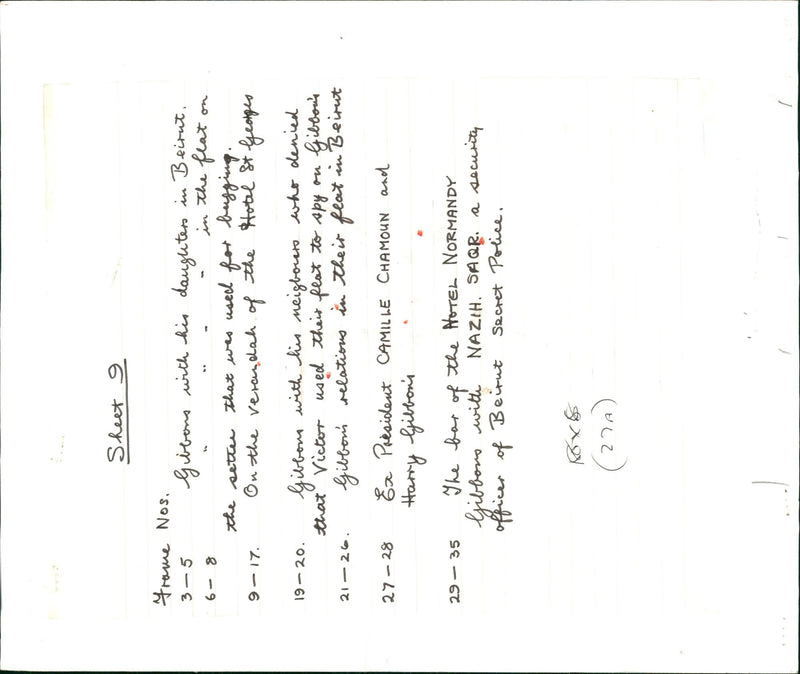 Sheet 9
Frame Nos.
3 – 5 Gibbons with his daughters in Beirut.
6 – 8 " " " " in the flat on
the settee that was used for bugging.
9 – 17. On the verandah of the Hotel St Georges
19 – 20. Gibbons with his neigbours who denied
that Victor used their flat to spy on Gibbons
21 – 26. Gibbons relations in their flat in Beirut
27 – 28 Ex President CAMILLE CHAMOUN and
Harry Gibbons
29 – 35 The bar of the HOTEL NORMANDY
Gibbons with NAZIH. SAQR. a security
officer of Beirut Secret Police.
(27A)